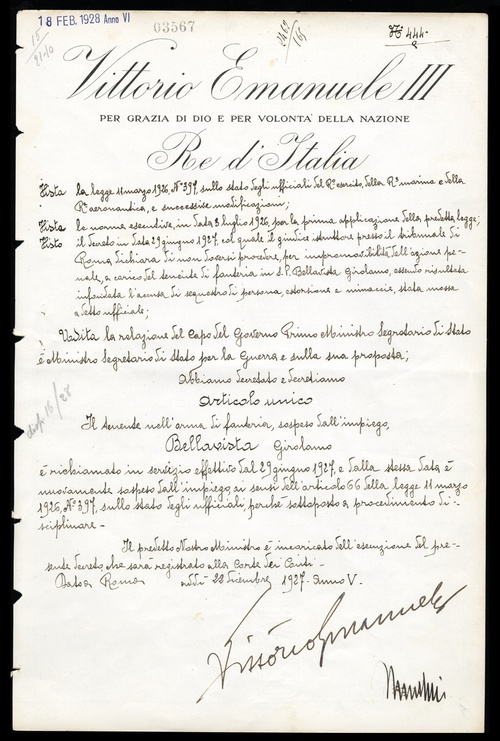 18 FEB. 1928 Anno VI
03567
N° 444
Vittorio Emanuele III
PER GRAZIA DI DIO E PER VOLONTA' DELLA NAZIONE
Re d'Italia
Vista la legge 11 marzo 1926, N° 397, sullo stato degli ufficiali del R° esercito, della R^a marina e della
R^a aeronautica, e successive modificazioni;
Viste le norme esecutive, in data 3 luglio 1926, per la prima applicazione della predetta legge;
Visto il decreto in data 29 giugno 1927, col quale il giudice istruttore presso il tribunale di
Roma dichiara di non doversi procedere, per impromovibilità dell'azione pe-
nale, a carico del tenente di fanteria in s.P. Bellavista Girolamo, essendo risultata
infondata l'accusa di sequestro di persona, estorsione e minaccie, stata mossa
a detto ufficiale;
Udita la relazione del Capo del Governo Primo Ministro Segretario di Stato
e Ministro Segretario di Stato per la Guerra e sulla sua proposta;
Abbiamo decretato e decretiamo
Articolo unico
Il tenente nell'arma di fanteria, sospeso dall'impiego,
Bellavista Girolamo
è richiamato in servizio effettivo dal 29 giugno 1927, e dalla stessa data è
nuovamente sospeso dall'impiego, ai sensi dell'articolo 66 della legge 11 marzo
1926, N° 397, sullo stato degli ufficiali perchè sottoposto a procedimento di-
sciplinare -
Il predetto Nostro Ministro è incaricato dell'esecuzione del pre-
sente decreto, che sarà registrato alla Corte dei Conti -
Dato a Roma addì 22 dicembre 1927 - Anno V -
Vittorio Emanuele
Mussolini